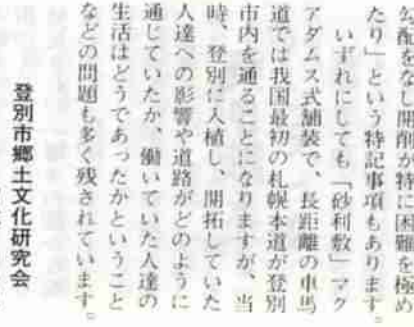 勾配をなし開削が特に困難を極め
たり」という特記事項もあります。
いずれにしても「砂利敷」マク
アダムス式舗装で、長距離の車馬
道では我国最初の札幌本道が登別
市内を通ることになりますが、当
時、登別に入植し、開拓していた
人達への影響や道路がどのように
通じていたか、働いていた人達の
生活はどうであったかということ
などの問題も多く残されています。
登別市郷土文化研究会